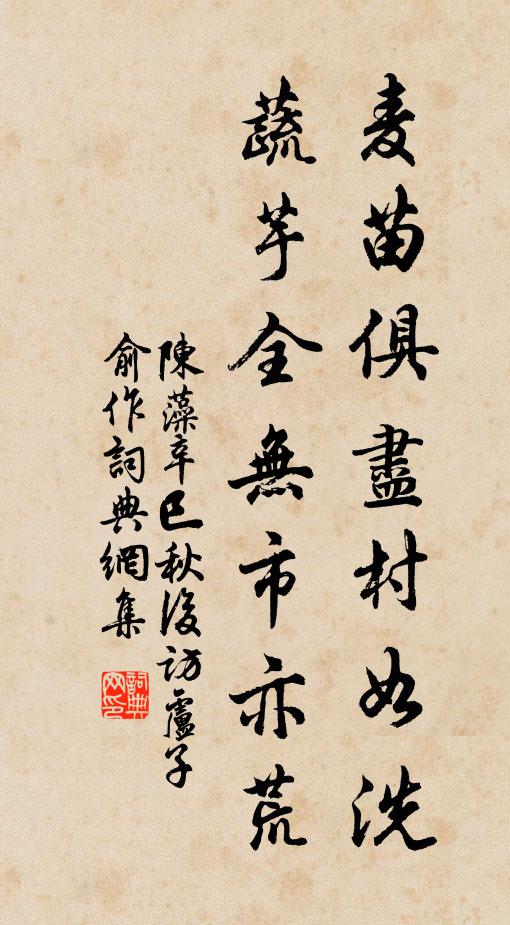 麦苗俱盡村如洗
蔬芋全無市亦荒
陳藻辛巳秋後訪盧子
俞作詞典網集
詞典網印